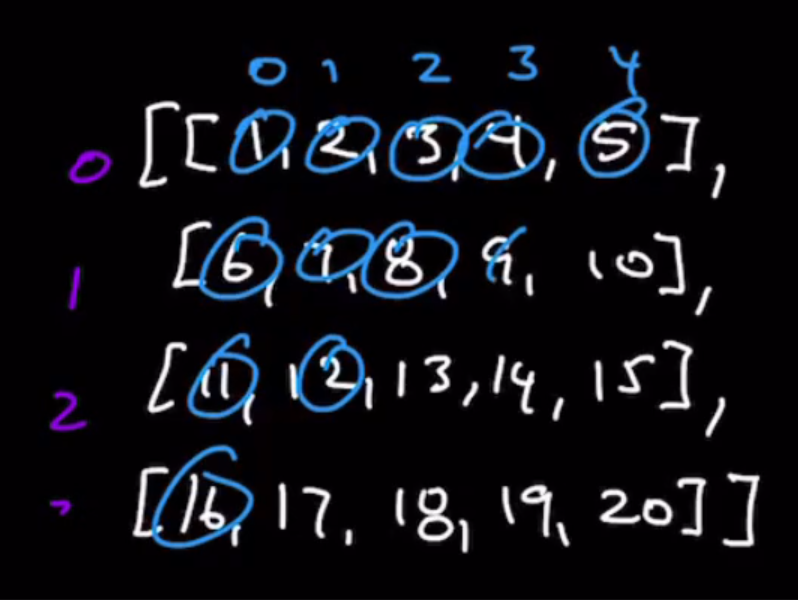 0 1 2 3 4
0 [[1, 2, 3, 4, 5],
1 [6, 7, 8, 9, 10],
2 [11, 12, 13, 14, 15],
[16, 17, 18, 19, 20]]